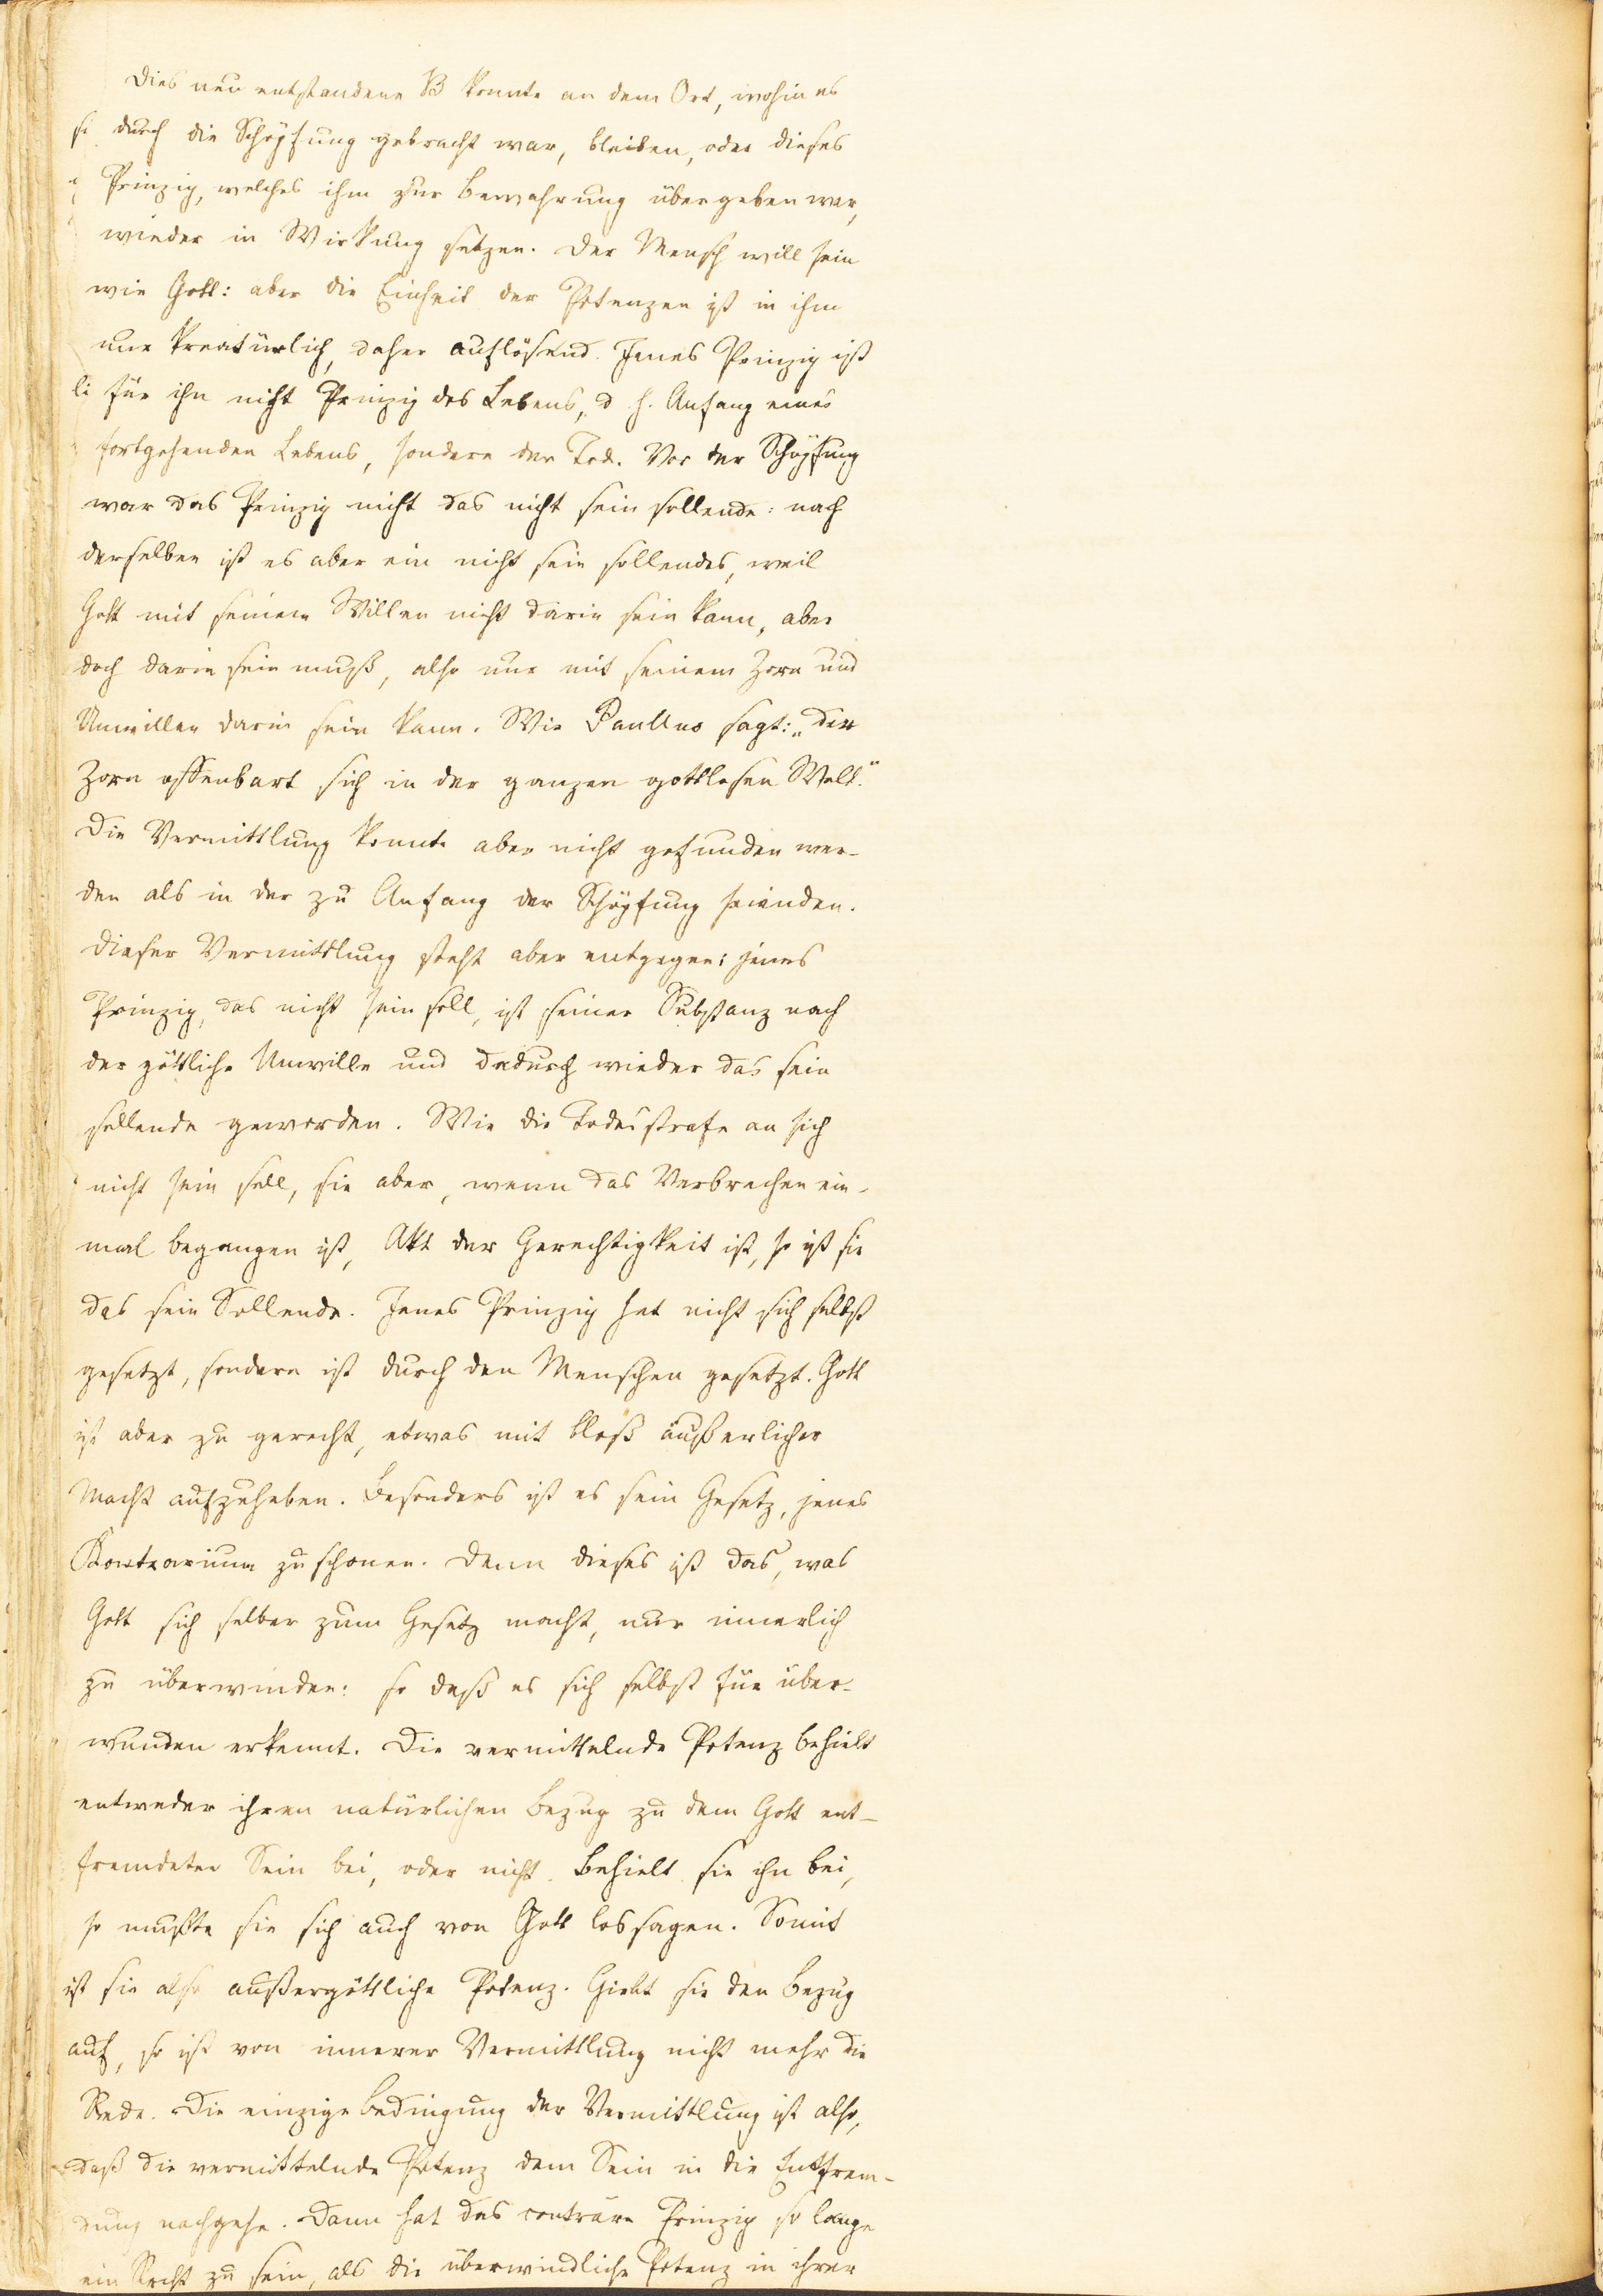 Dies neu entstandene B konnte an dem Ort, wohin es
durch die Schöpfung gebracht war, bleiben, oder dieses
Prinzip, welches ihm zur Bewahrung übergeben war,
wieder in Wirkung setzen. Der Mensch will sein
wie Gott: aber die Einheit der Potenzen ist in ihm
nur kreatürlich, daher auflösend. Jenes Prinzip ist
für ihn nicht Prinzip des Lebens, d. h. Anfang eines
fortgehenden Lebens, sondern der Tod. Vor der Schöpfung
war das Prinzip nicht das nicht sein sollende: nach
derselben ist es aber ein nicht sein sollendes, weil
Gott mit seinem Willen nicht darin sein kann, aber
doch darin sein muß, also nur mit seinem Zorn und
Unwillen darin sein kann. Wie Paullus sagt: „der
Zorn offenbart sich in der ganzen gottlosen Welt.“
Die Vermittlung konnte aber nicht gefunden wer-
den als in der zu Anfang der Schöpfung seienden.
Dieser Vermittlung steht aber entgegen: jenes
Prinzip, das nicht sein soll, ist seiner Substanz nach
der göttliche Unwille und dadurch wieder das sein
sollende geworden. Wie die Todesstrafe an sich
nicht sein soll, sie aber, wenn das Verbrechen ein-
mal begangen ist, Akt der Gerechtigkeit ist, so ist sie
das sein Sollende. Jenes Prinzip hat nicht sich selbst
gesetzt, sondern ist durch den Menschen gesetzt. Gott
ist aber zu gerecht, etwas mit bloß äußerlicher
Macht aufzuheben. Besonders ist es sein Gesetz, jenes
Kontrarium zu schonen. Denn dieses ist das, was
Gott sich selber zum Gesetz macht, nur innerlich
zu überwinden: so daß es sich selbst für über-
wunden erkennt. Die vermittelnde Potenz behielt
entweder ihren natürlichen Bezug zu dem Gott ent-
fremdeten Sein bei, oder nicht. Behielt sie ihn bei,
so mußte sie sich auch von Gott lossagen. Somit
ist sie also außergöttliche Potenz. Giebt sie den Bezug
auf, so ist von innerer Vermittlung nicht mehr die
Rede. Die einzige Bedingung der Vermittlung ist also,
daß die vermittelnde Potenz dem Sein in die Entfrem-
dung nachgehe. Dann hat das conträre Prinzip so lange
ein Recht zu sein, als die überwindliche Potenz in ihrer